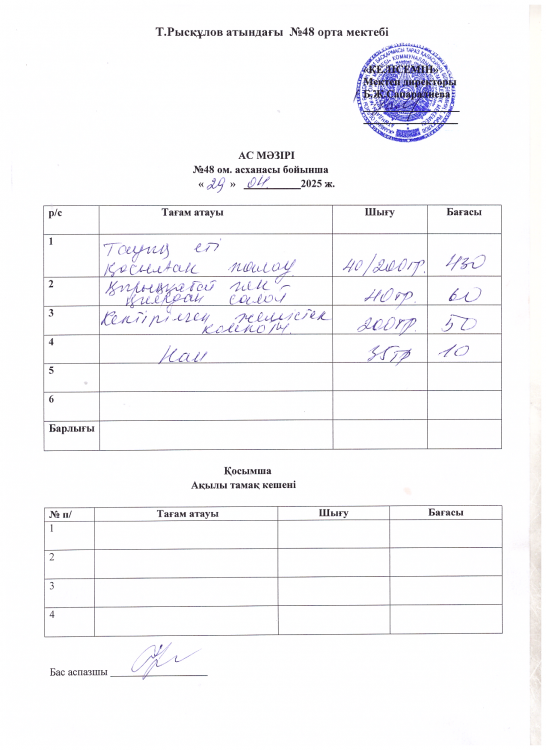 Т.Рысқұлов атындағы №48 орта мектебі
«КЕЛІСЕМІН»
Мектеп директоры
Б.Ж.Сапаралиева
АС МӘЗІРІ
№48 ом. асханасы бойынша
« 29 » 04 2025 ж.
р/с Тағам атауы Шығу Бағасы
1 Тауық еті
қосылған палау 40/200гр. 430
2 Қырыққабат пен
қиярдан салат 40гр. 60
3 Кептірілген жемістен
компот. 200гр. 50
4 Нан 35гр 10
5
6
Барлығы
Қосымша
Ақылы тамақ кешені
№ п/ Тағам атауы Шығу Бағасы
1
2
3
4
Бас аспазшы